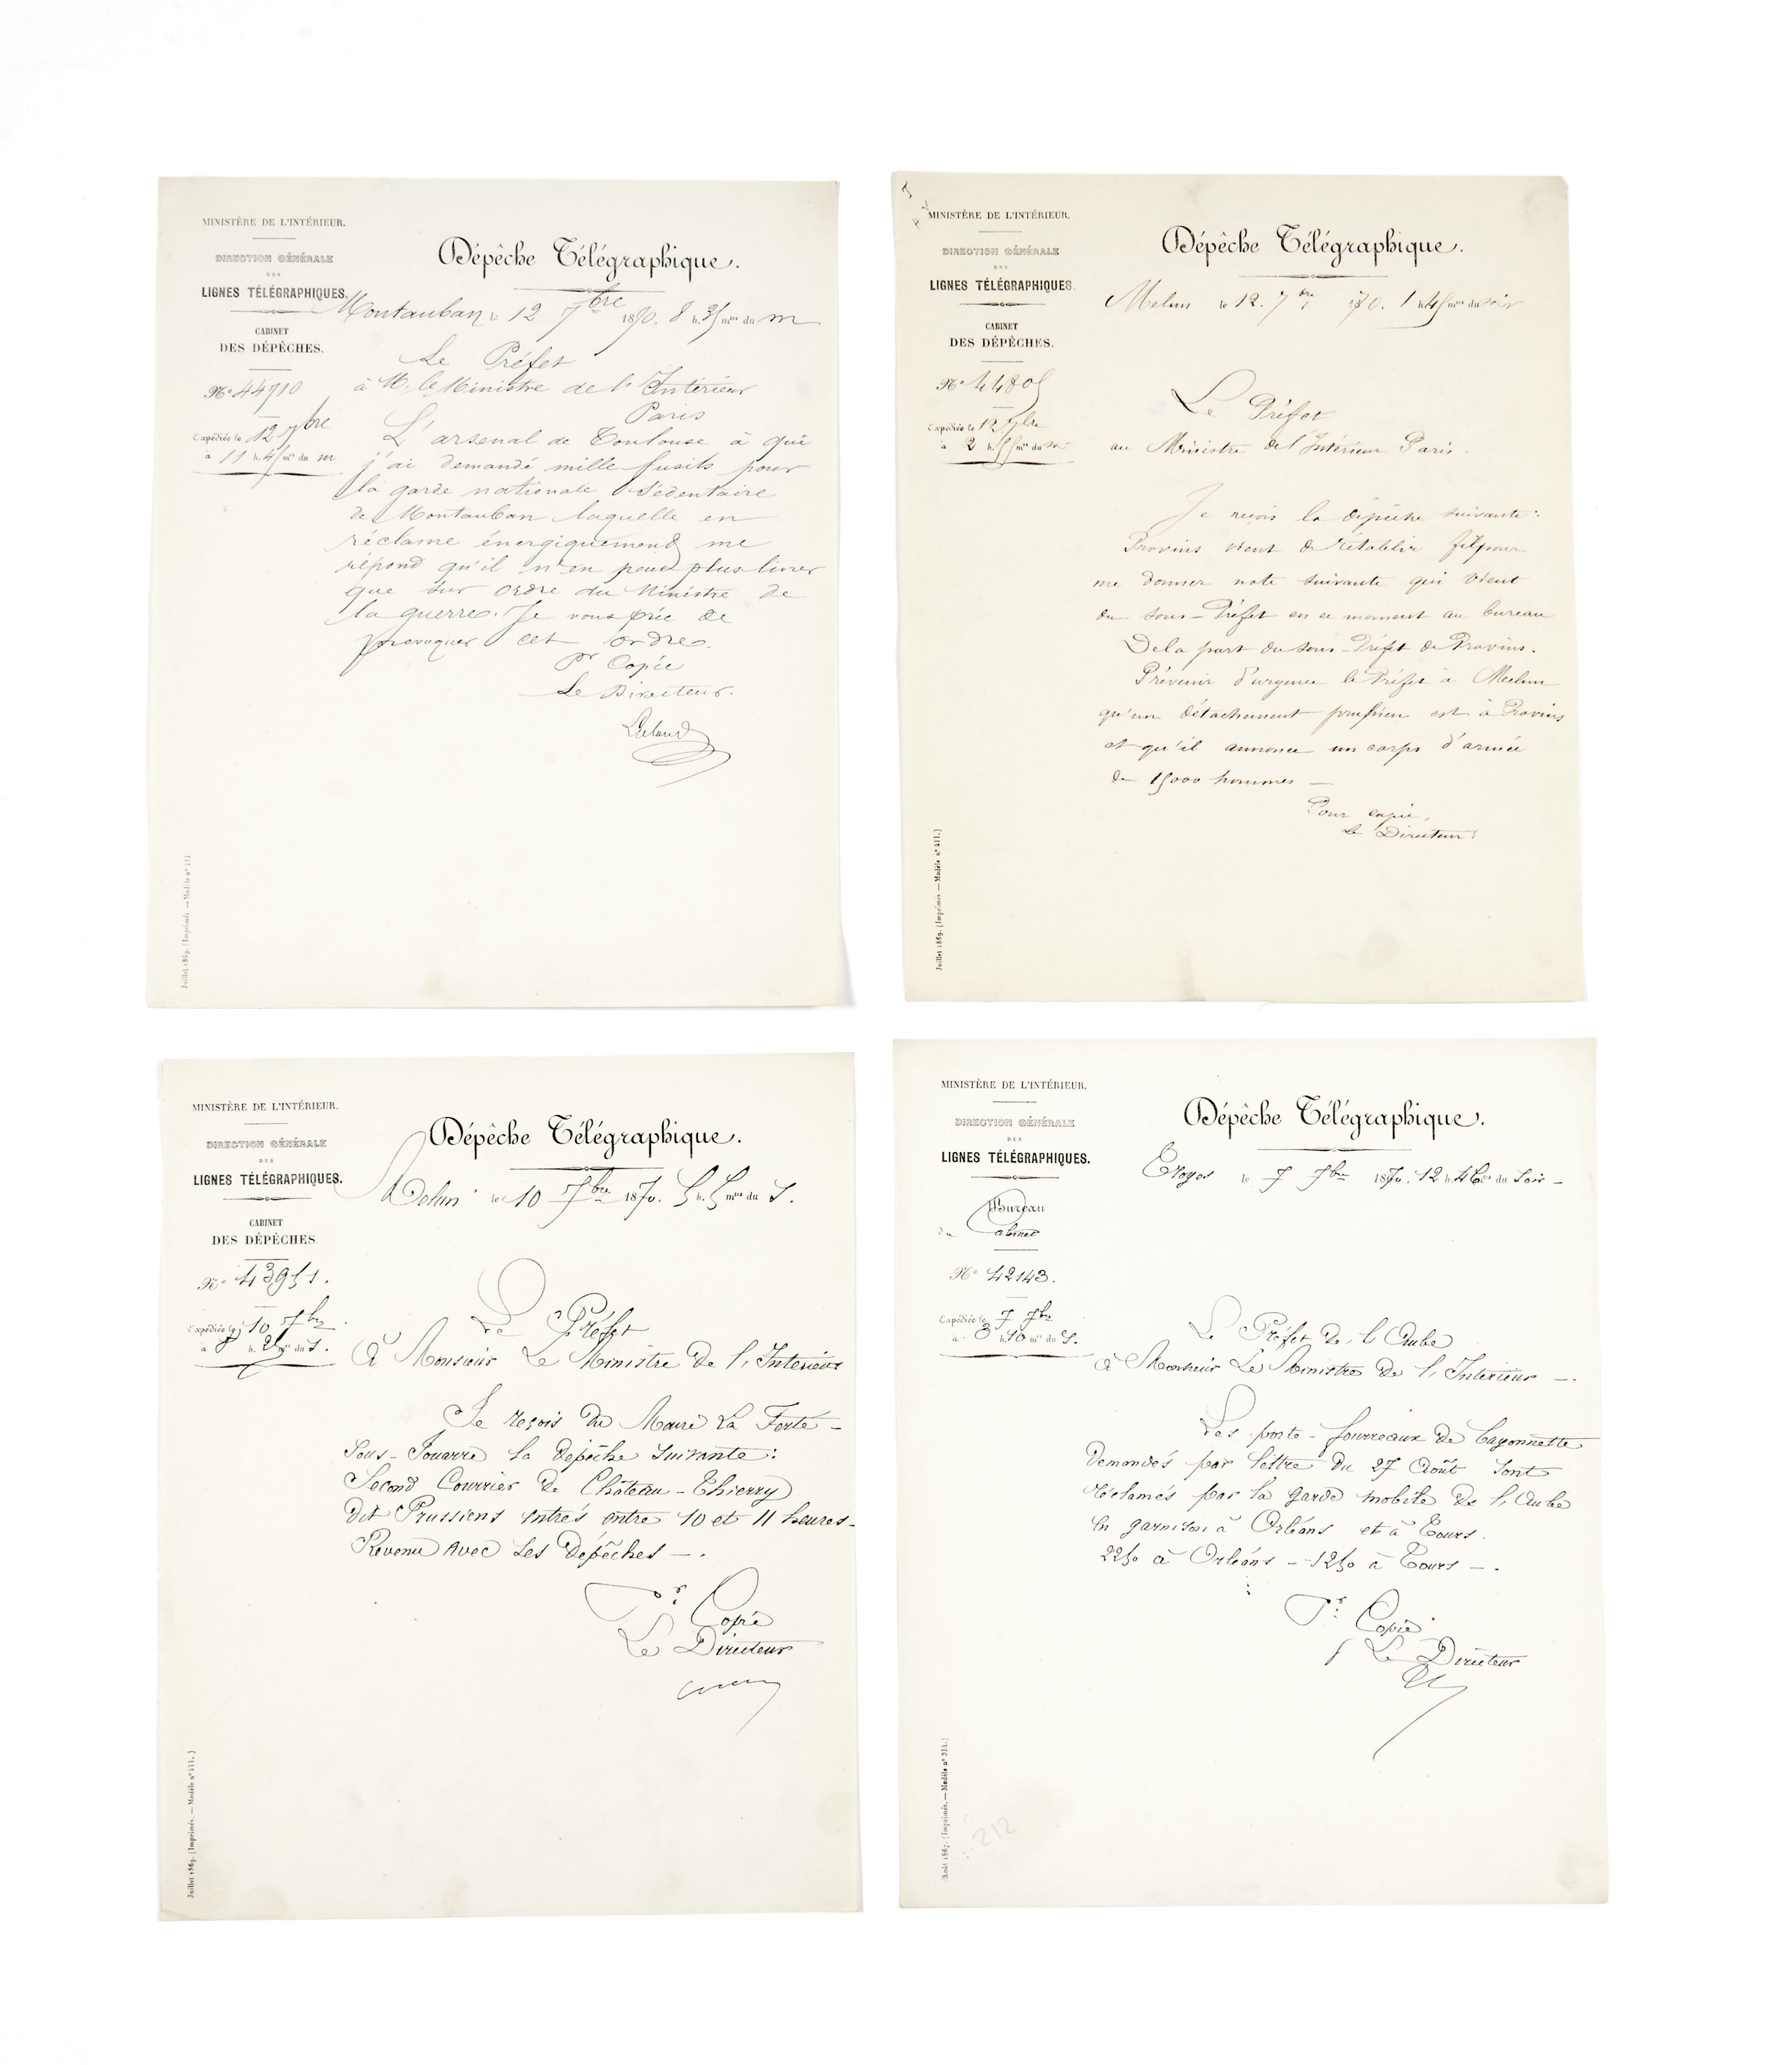 MINISTÈRE DE L'INTÉRIEUR.
DIRECTION GÉNÉRALE
DES
LIGNES TÉLÉGRAPHIQUES.
CABINET
DES DÉPÊCHES.
N° 44710
Expédiée le 12 7bre
à 11 h. 45 mes du m
Dépêche Télégraphique.
Montauban le 12 7bre 1870. 8 h. 35 mes du m
Le Préfet
à M. le Ministre de l'Intérieur
Paris
L'arsenal de Toulouse à qui
j'ai demandé mille fusils pour
la garde nationale sédentaire
de Montauban laquelle en
réclame énergiquement me
répond qu'il n'en peut plus livrer
que sur ordre du Ministre de
la guerre. Je vous prie de
provoquer cet ordre.
Pr Copie
Le Directeur.
Juillet 1869. (Imprimés — Modèle n° 411
MINISTÈRE DE L'INTÉRIEUR.
DIRECTION GÉNÉRALE
DES
LIGNES TÉLÉGRAPHIQUES.
CABINET
DES DÉPÊCHES.
N° 44805
Expédiée le 12 7bre
à 2 h. 55 mes du soir
Dépêche Télégraphique.
Melun le 12. 7bre 1870. 1 h. 45 mes du soir
Le Préfet
au Ministre de l'Intérieur Paris.
Je reçois la dépêche suivante:
Provins vient de rétablir fil pour
me donner note suivante qui vient
du sous-Préfet en ce moment au bureau
De la part du sous-Préfet de Provins.
Prévenir d'urgence le Préfet à Melun
qu'un détachement prussien est à Provins
et qu'il annonce un corps d'armée
de 15000 hommes —
Pour copie,
Le Directeur:
Juillet 1869. (Imprimés. — Modèle n° 411.)
MINISTÈRE DE L'INTÉRIEUR.
DIRECTION GÉNÉRALE
DES
LIGNES TÉLÉGRAPHIQUES.
CABINET
DES DÉPÊCHES.
N° 43951.
Expédiée le 10 7bre
à 8 h. 25 mes du S.
Dépêche Télégraphique.
Melun le 10 7bre 1870. 5 h. 5 mes du S.
Le Préfet
à Monsieur Le Ministre de l'Interieur
Je reçois du Maire La Ferté-
Sous-Jouarre la dépêche suivante:
Second Courrier de Château-Thierry
dit Prussiens entrés entre 10 et 11 heures-
Revenu avec ses dépêches —.
Pr. Copie
Le Directeur
Juillet 1869. (Imprimés. — Modèle n° 411.)
MINISTÈRE DE L'INTÉRIEUR.
DIRECTION GÉNÉRALE
DES
LIGNES TÉLÉGRAPHIQUES.
Bureau
du Cabinet
N° 42143.
Expédiée le 7 7bre
à 3 h. 10 mes du S.
Dépêche Télégraphique.
Troyes le 7 7bre 1870. 12 h. 46 mes du Soir —
Le Préfet de l'Aube
à Monsieur Le Ministre de l'Intérieur —.
Les porte-fourreaux de bayonnette
demandés par lettre du 27 Août sont
réclamés par la garde mobile de l'Aube
en garnison à Orléans et à Tours.
2250 à Orléans — 1250 à Tours —.
Pr. Copie
Le Directeur
Août 1867. (Imprimés. — Modèle n° 314.)
212